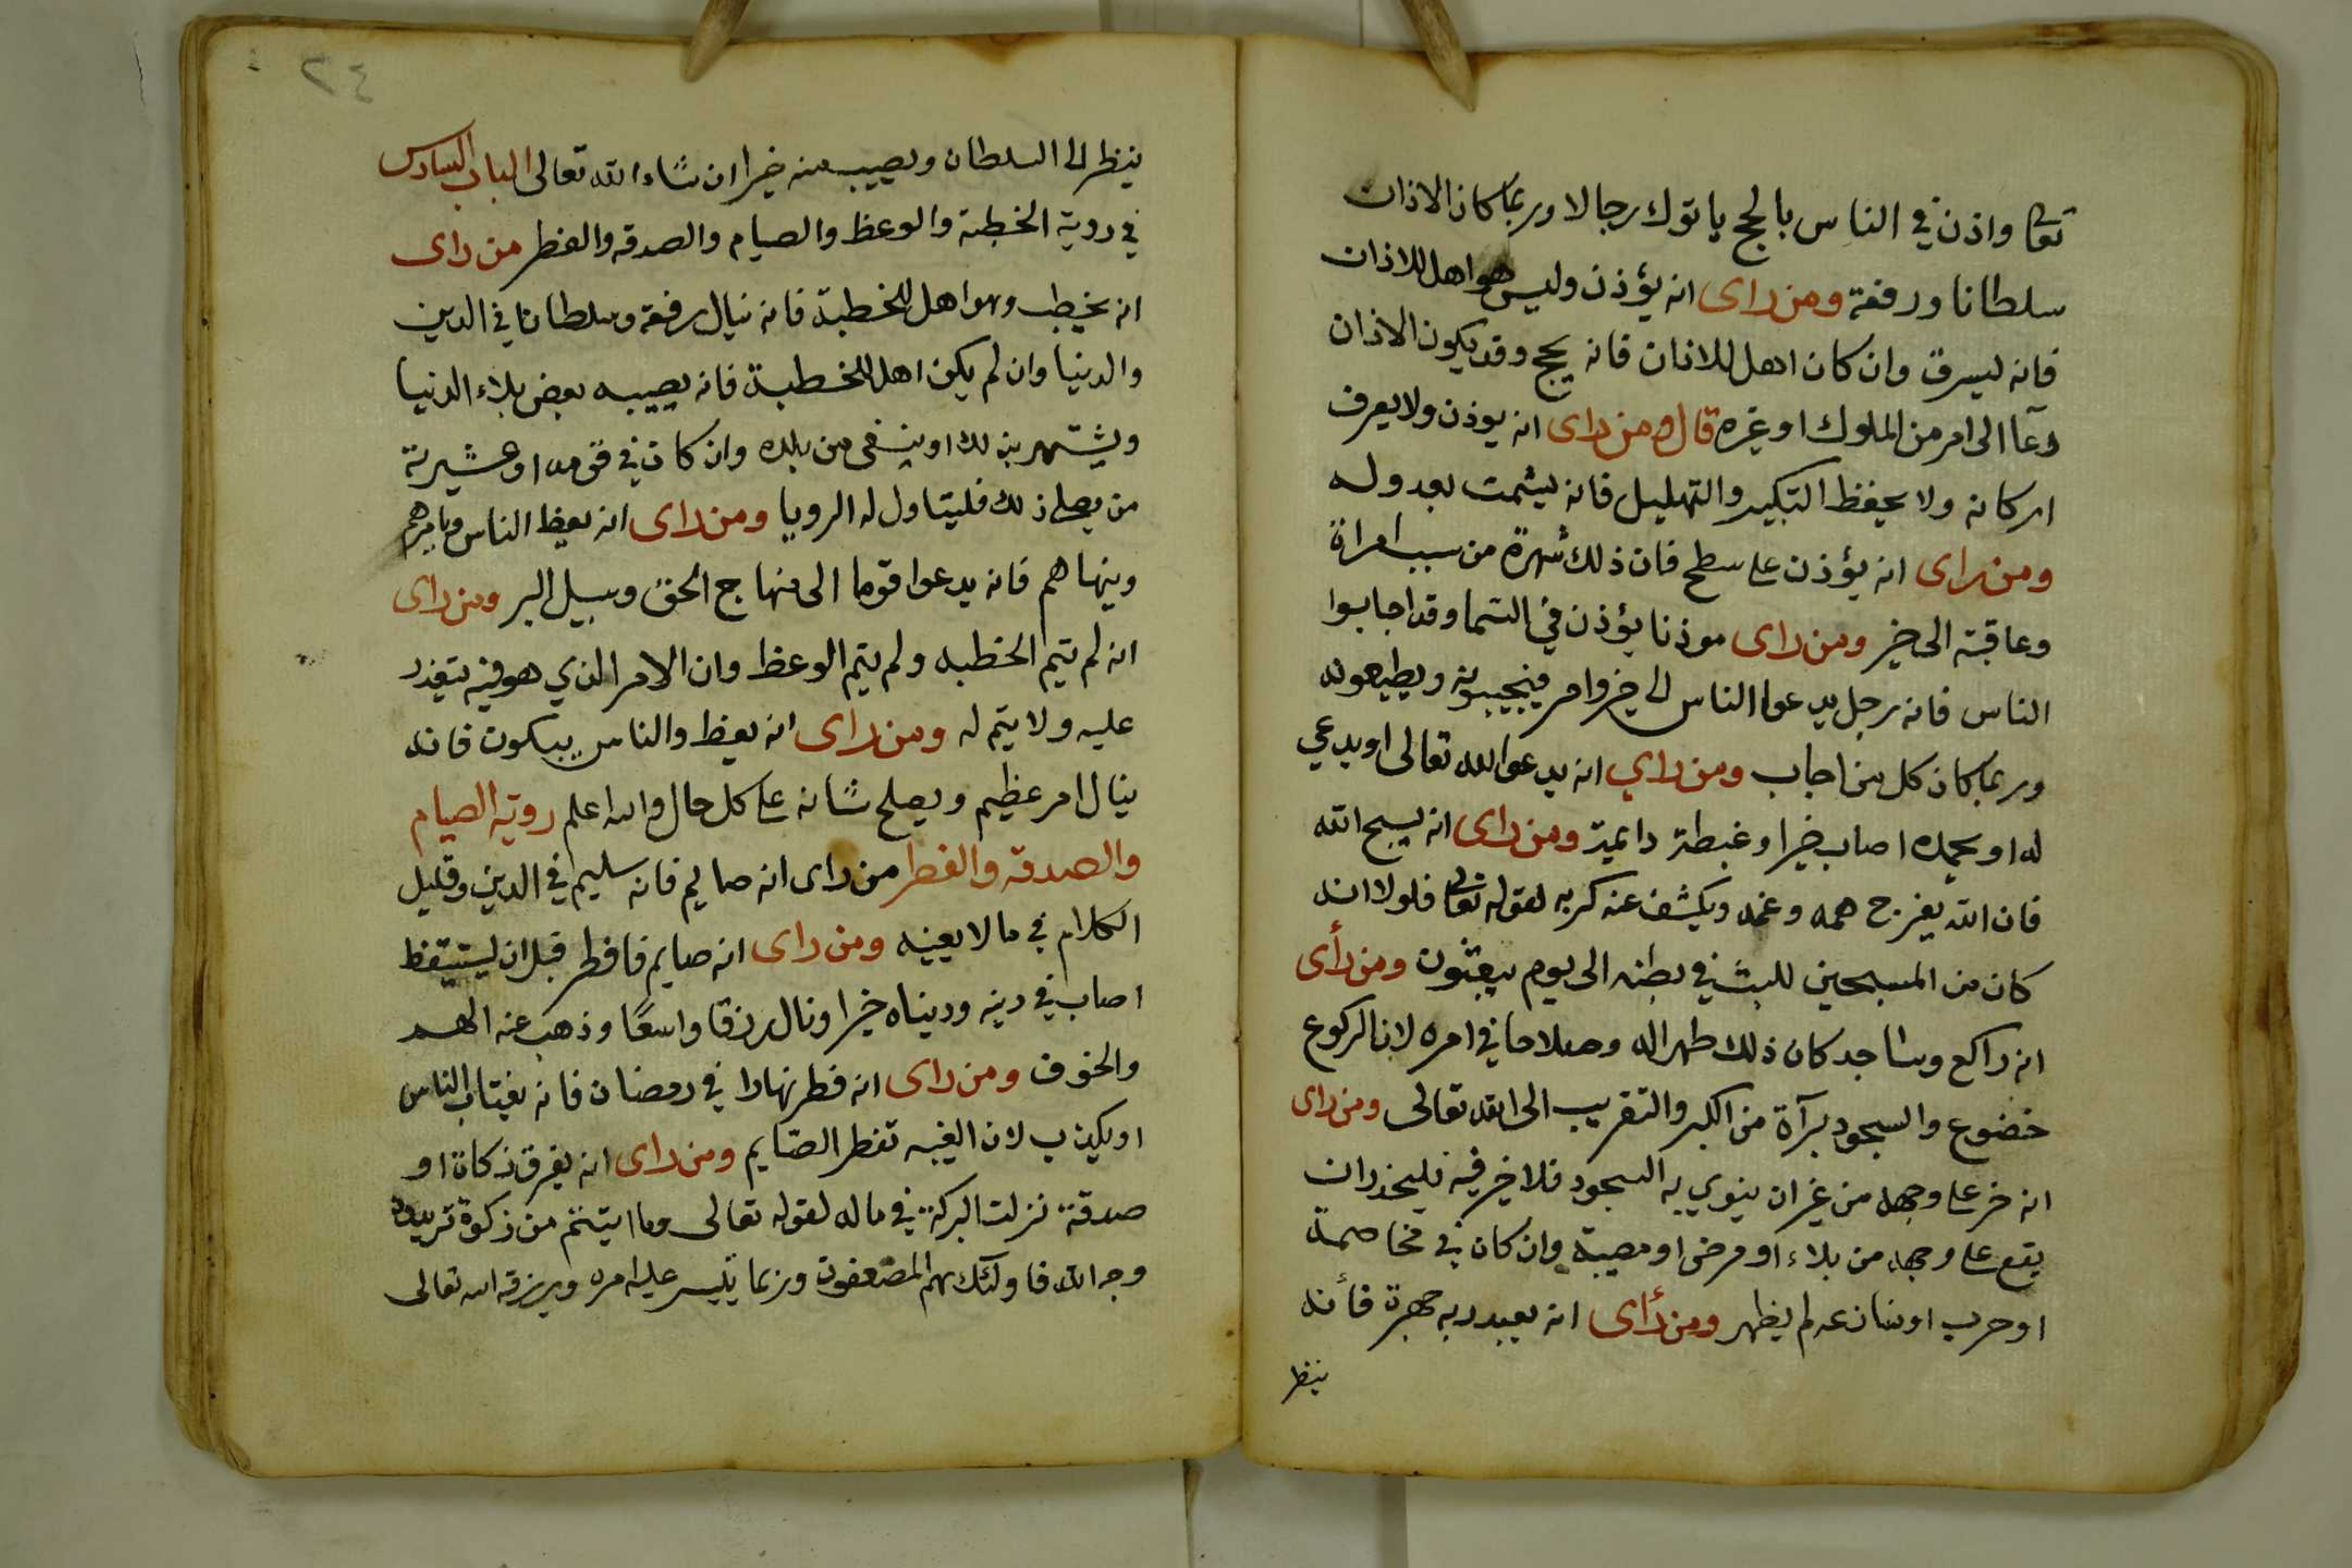 تعالى واذن في الناس بالحج ياتوك رجالا وربما كان الاذان
سلطانا ورفعة ومن راى انه يؤذن وليس هو اهل للاذان
فانه ليسرق وان كان اهل للاذان فانه يحج وقد يكون الاذان
دعآا الى امر من الملوك او غيره قال ومن راى انه يوذن ولا يعرف
اركانه ولا يحفظ التكبير والتهليل فانه يشمت بعد وله
ومن راى انه يؤذن على سطح فان ذلك شهرة من سبب امراة
وعاقبته الى خير ومن راى موذنا يؤذن في السما وقد اجابوا
الناس فانه رجل يدعوا الناس الى خير وامر فيجيبونه ويطيعونه
وربما كان كل من اجاب ومن راي انه يدعوا الله تعالى او يدعي
له او يحمده اصاب خيرا وغبطة دايمية ومن راى انه يسبح الله
فان الله يفرج همه وغمه ويكشف عنه كربه لقوله تعالى فلولا انه
كان من المسبحين للبث في بطنه الى يوم يبعثون ومن رأى
انه راكع وساجد كان ذلك طهرا له وصلاحا في امره لان الركوع
خضوع والسجود برآة من الكبر والتقريب الى الله تعالى ومن راى
انه خر على وجهه من غير ان ينوي به السجود فلا خير فيه فليحذر ان
يقع على وجهه من بلاء او مرض او مصيبة وان كان في مخاصمة
او حرب او منازعه لم يظهر ومن رأى انه يعبد ربه جهرة فأنه
ينظر
٢٤
ينظر الى السلطان ويصيب منه خيرا ان شاء الله تعالى الباب السادس
في روية الخطبة والوعظ والصيام والصدقه والفطر من راى
انه يخطب وهو اهل للخطبة فانه ينال رفعة وسلطانا في الدين
والدنيا وان لم يكن اهل للخطبة فانه يصيبه بعض بلاء الدنيا
ويشتهر بذلك او ينفى من بلده وان كان في قومه او عشيرته
من يصلح ذلك فليتاول له الرويا ومن راى انه يعظ الناس ويامرهم
وينهاهم فانه يدعوا قوما الى منهاج الحق وسبيل البر ومن راى
انه لم يتم الخطبه ولم يتم الوعظ وان الامر الذي هو فيه يتعذر
عليه ولا يتم له ومن راى انه يعظ والناس يبكون فانه
ينال امر عظيم ويصلح شانه على كل حال والله اعلم روية الصيام
والصدقه والفطر من راى انه صايم فانه سليم في الدين وقليل
الكلام في مالا يعنيه ومن راى انه صايم فافطر قبل ان يستيقظ
اصاب في دينه ودنياه خيرا ونال رزقا واسعًا وذهب عنه الهم
والخوف ومن راى انه فطر نهارا في رمضان فانه يغتاب الناس
او يكذب لان الغيبه تفطر الصّايم ومن راى انه يفرق زكاة او
صدقة نزلت البركة في ماله لقوله تعالى وما اتيتم من زكوة تريدون
وجه الله فاولئك هم المضعفون وربما يتيسر عليه امره ويرزقه الله تعالى